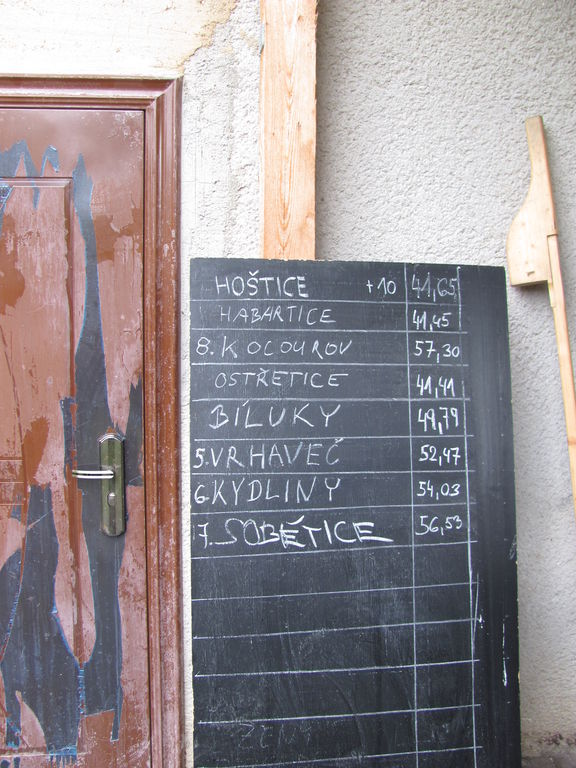 HOŠTICE +10 41,65
HABARTICE 41,45
8. KOCOUROV 57,30
OSTŘETICE 41,41
BÍLUKY 49,79
5. VRHAVEČ 52,47
6. KYDLINY 54,03
7. SOBĚTICE 56,53